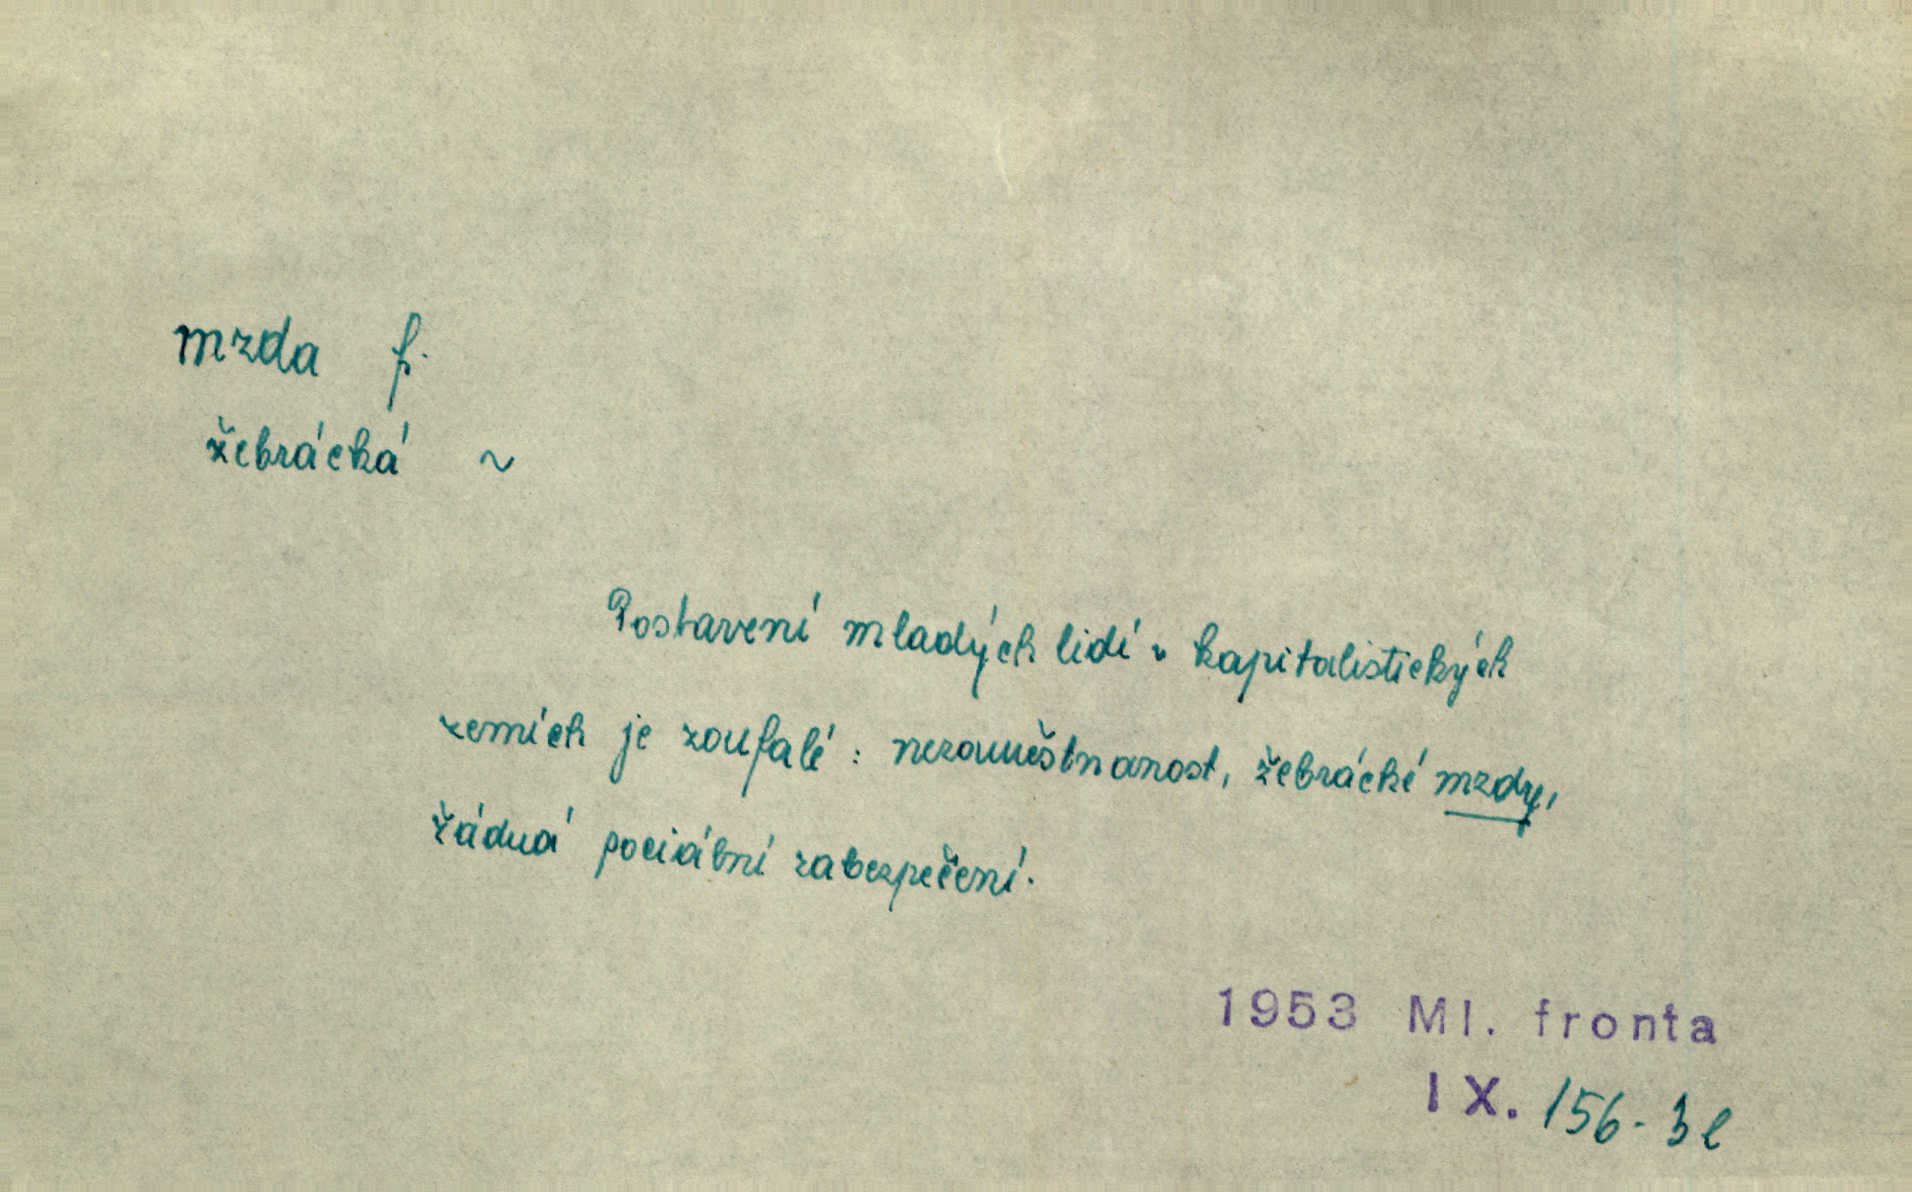 mzda f.
žebrácká ~
Postavení mladých lidí v kapitalistických
zemích je zoufalé: nezaměstnanost, žebrácké mzdy,
žádná sociální zabezpečení.
1953 Ml. fronta
IX. 156-3l